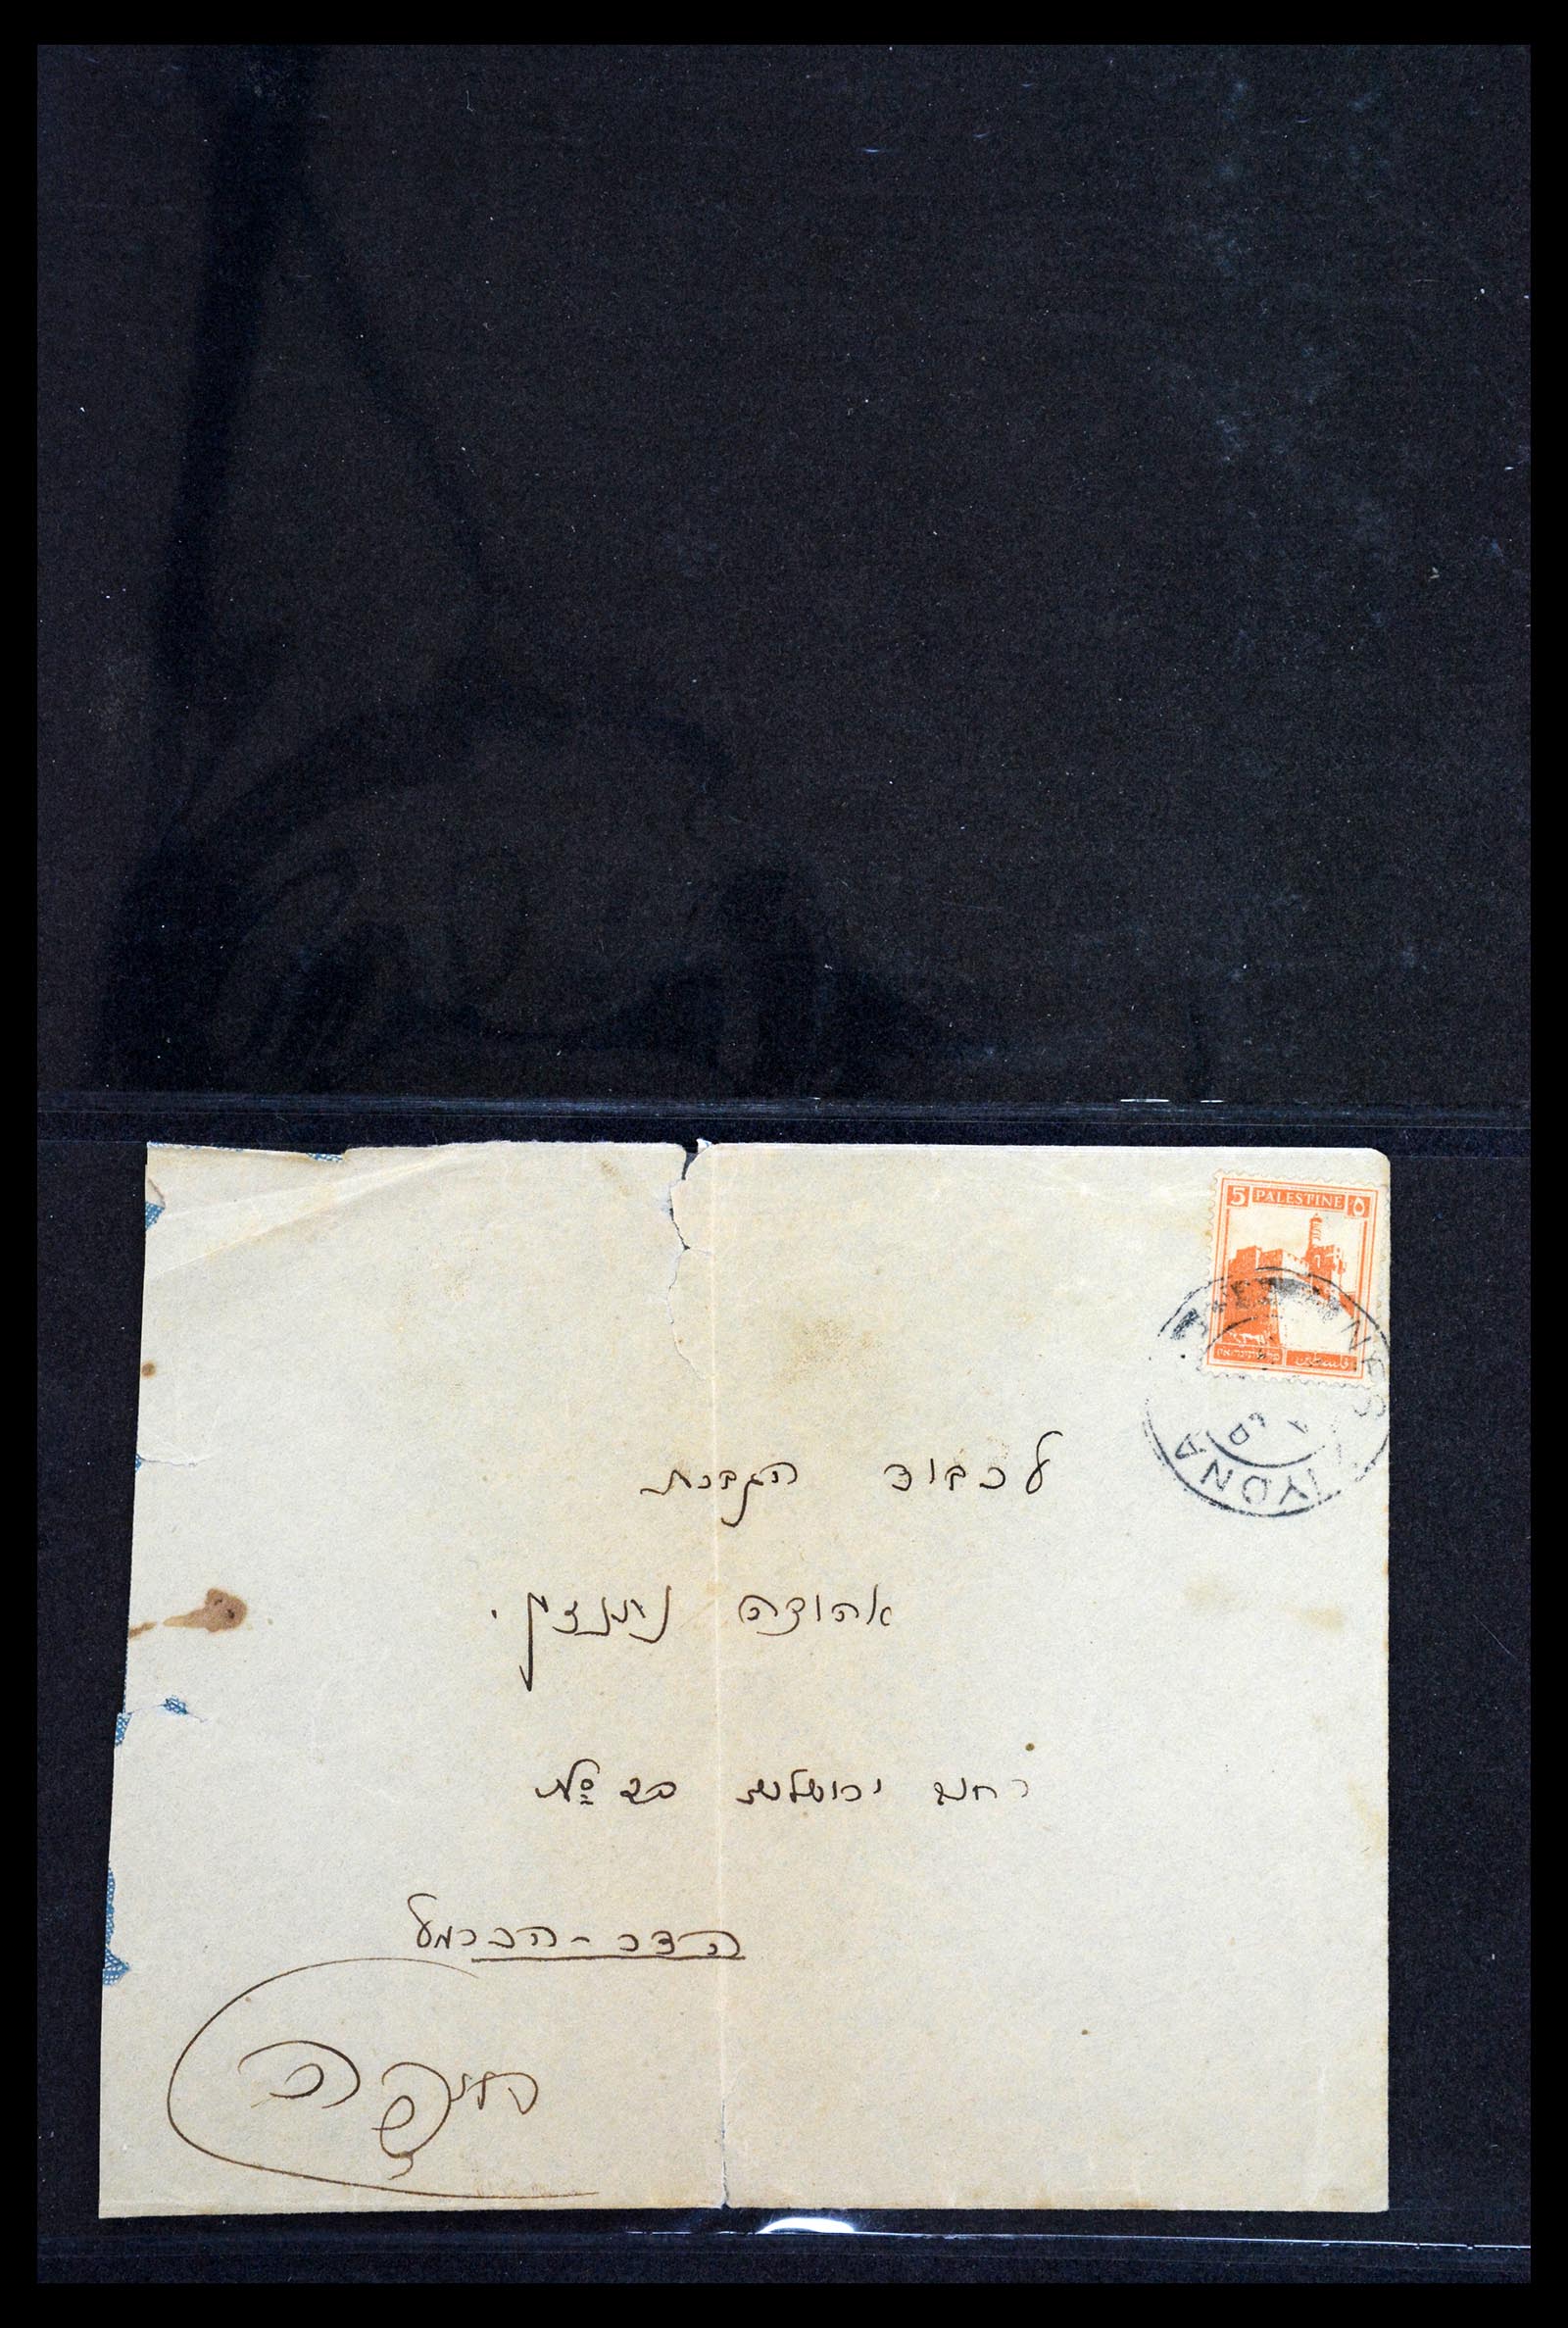 5 PALESTINE ٥
فلسطين פלשתינה א״י
NES IYONA
לכבוד הגברת
אהודה
רחוב ירושלים
הדר - הכרמל
חיפה